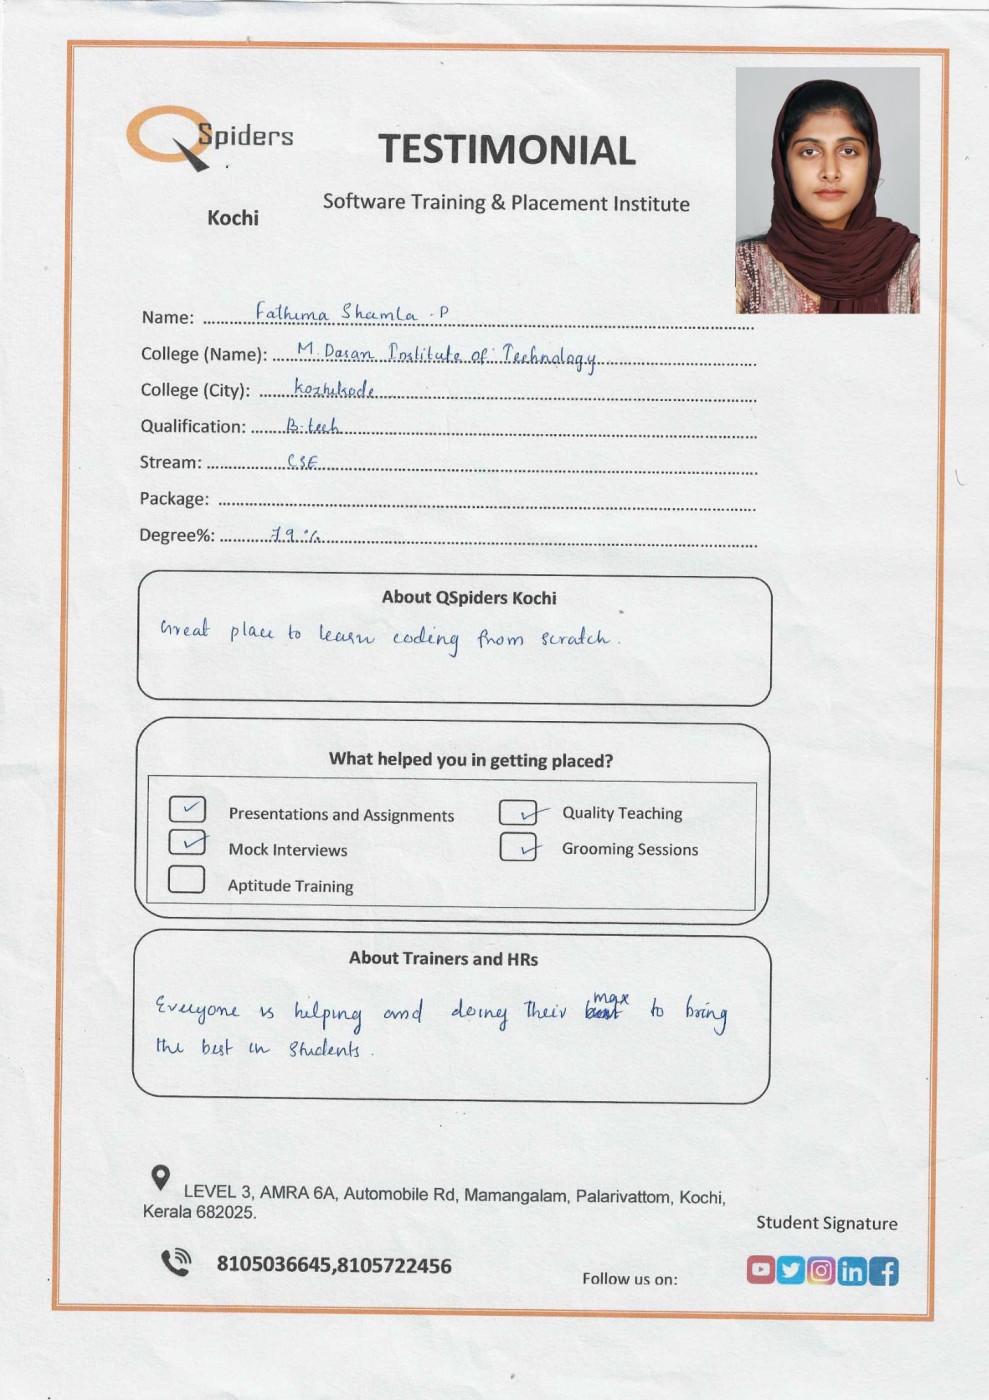 QSpiders
Kochi
TESTIMONIAL
Software Training & Placement Institute
Name: Fathima Shamla .P
College (Name): M. Dasan Institute of Technology
College (City): Kozhikode
Qualification: B.tech
Stream: CSE
Package:
Degree%: 79%
About QSpiders Kochi
Great place to learn coding from scratch.
What helped you in getting placed?
Presentations and Assignments
Quality Teaching
Mock Interviews
Grooming Sessions
Aptitude Training
About Trainers and HRs
Everyone is helping and doing their max to bring
the best in students.
LEVEL 3, AMRA 6A, Automobile Rd, Mamangalam, Palarivattom, Kochi,
Kerala 682025.
Student Signature
8105036645,8105722456
Follow us on: